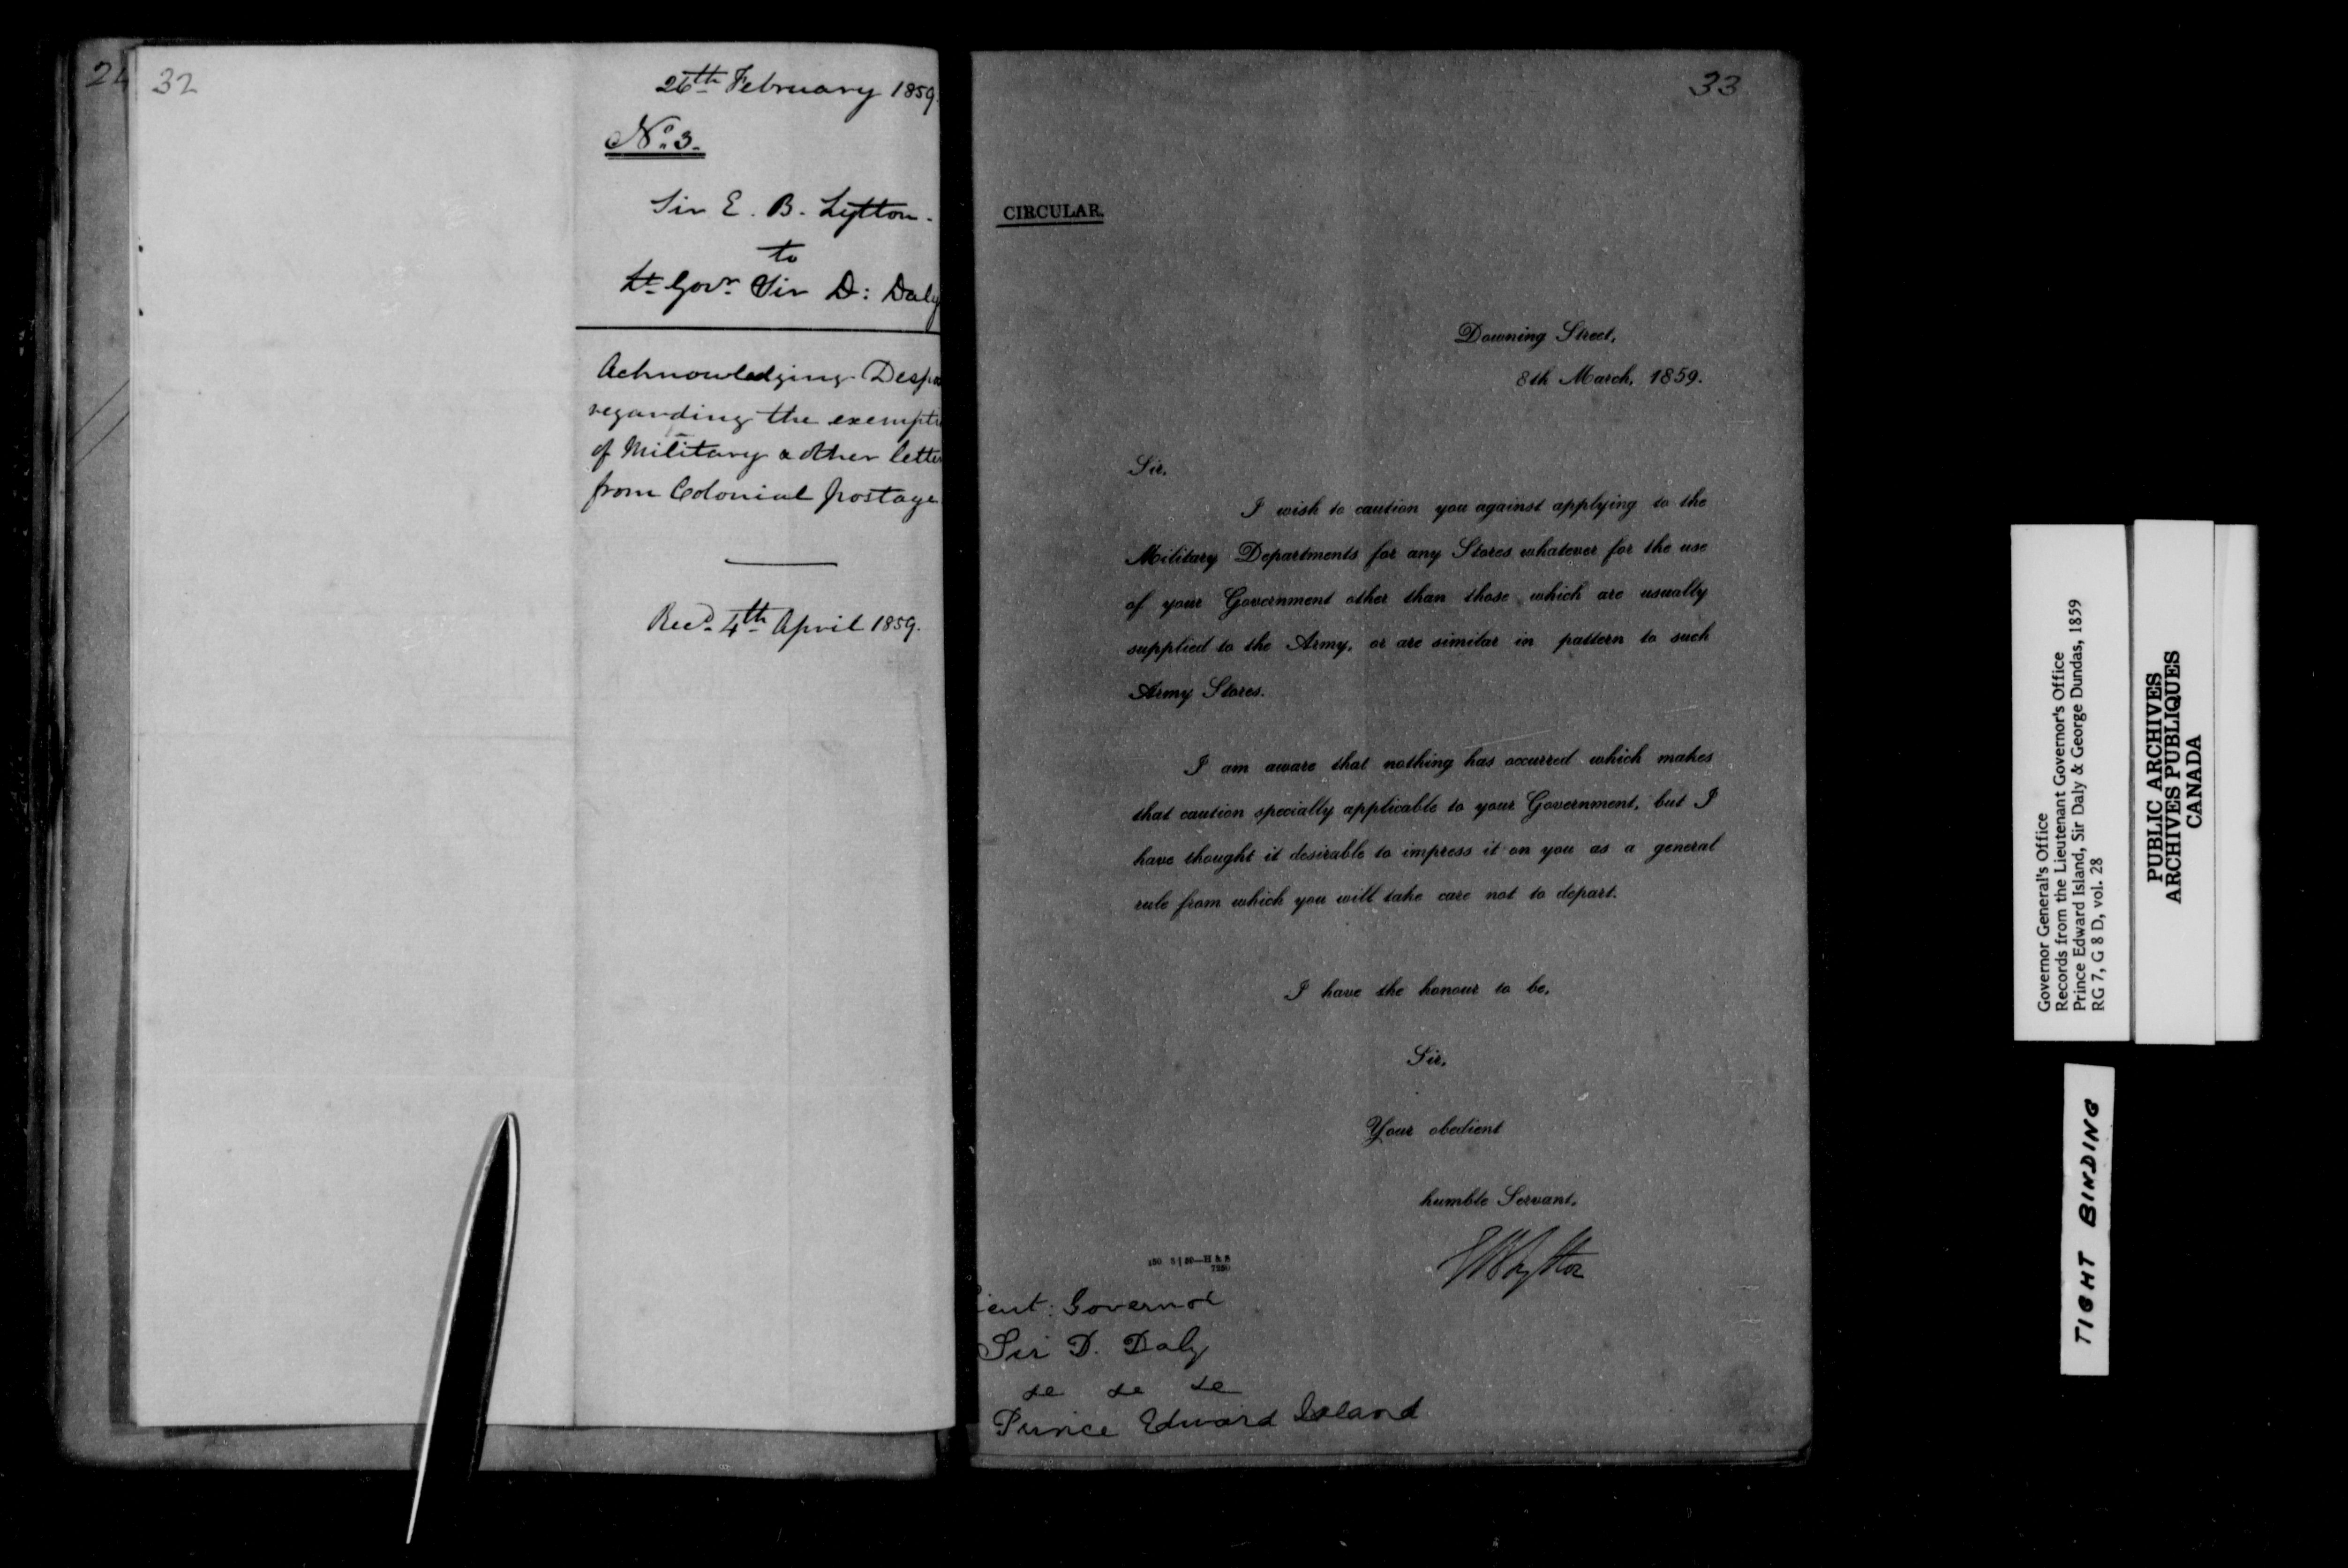 24 32
26th February 1859.
No. 3.
Sir E. B. Lytton.
to
Lt. Govr. Sir D: Daly
Acknowledging Desp
regarding the exempt
of Military & other lette
from Colonial postage
Recd. 4th April 1859.
33
CIRCULAR.
Downing Street,
8th March, 1859.
Sir,
I wish to caution you against applying to the
Military Departments for any Stores whatever for the use
of your Government other than those which are usually
supplied to the Army, or are similar in pattern to such
Army Stores.
I am aware that nothing has occurred which makes
that caution specially applicable to your Government, but I
have thought it desirable to impress it on you as a general
rule from which you will take care not to depart.
I have the honour to be,
Sir,
Your obedient
humble Servant,
EBLytton
ieut: Governor
Sir D. Daly
&c &c &c
Prince Edward Island
Governor General's Office
Records from the Lieutenant Governor's Office
Prince Edward Island, Sir Daly & George Dundas, 1859
RG 7, G 8 D, vol. 28
PUBLIC ARCHIVES
ARCHIVES PUBLIQUES
CANADA
TIGHT BINDING